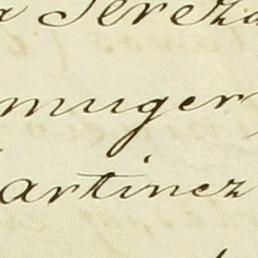 a Tereza
muger
artinez